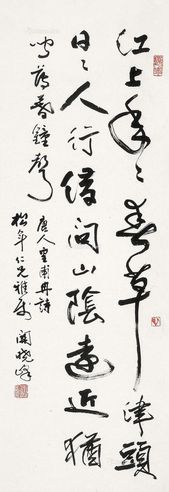 江上年々春草津頭
日々人行借問山陰遠近猶
聞薄暮鐘聲
唐人皇甫冉詩
松年仁兄雅属